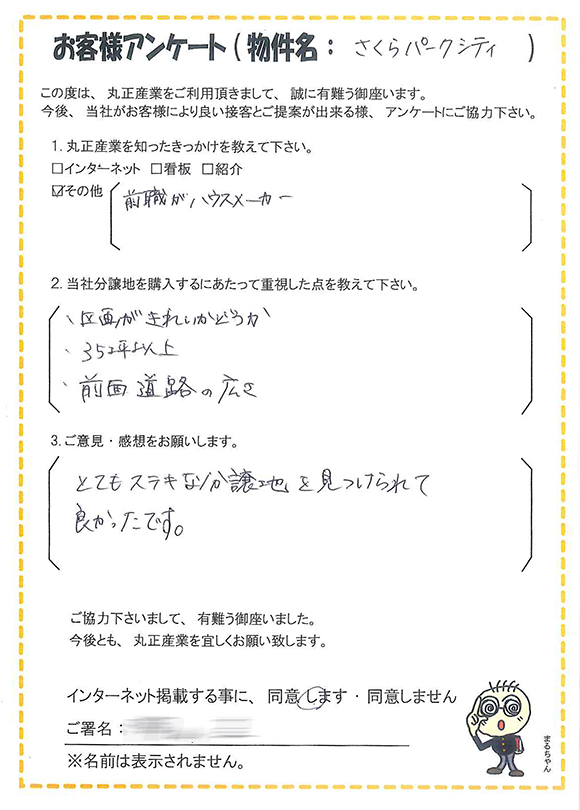 お客様アンケート(物件名：さくらパークシティ)
この度は、丸正産業をご利用頂きまして、誠に有難う御座います。
今後、当社がお客様により良い接客とご提案が出来る様、アンケートにご協力下さい。
1. 丸正産業を知ったきっかけを教えて下さい。
□インターネット □看板 □紹介
☑その他 前職がハウスメーカー
2. 当社分譲地を購入するにあたって重視した点を教えて下さい。
、区画がきれいかどうか
、35坪以上
、前面道路の広さ
3. ご意見・感想をお願いします。
とてもステキな分譲地を見つけられて
良かったです。
ご協力下さいまして、有難う御座いました。
今後とも、丸正産業を宜しくお願い致します。
インターネット掲載する事に、同意します・同意しません
ご署名：
※名前は表示されません。
まるちゃん